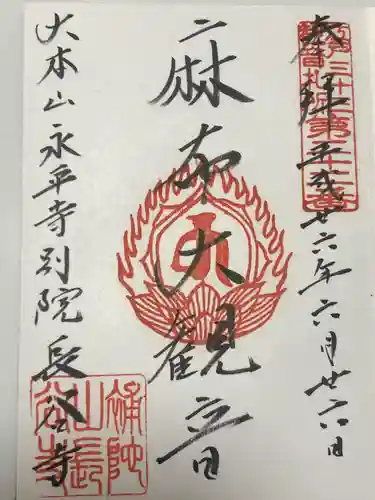 奉拝 平成廿六年六月廿六日
麻布大観音
大本山永平寺別院 長谷寺